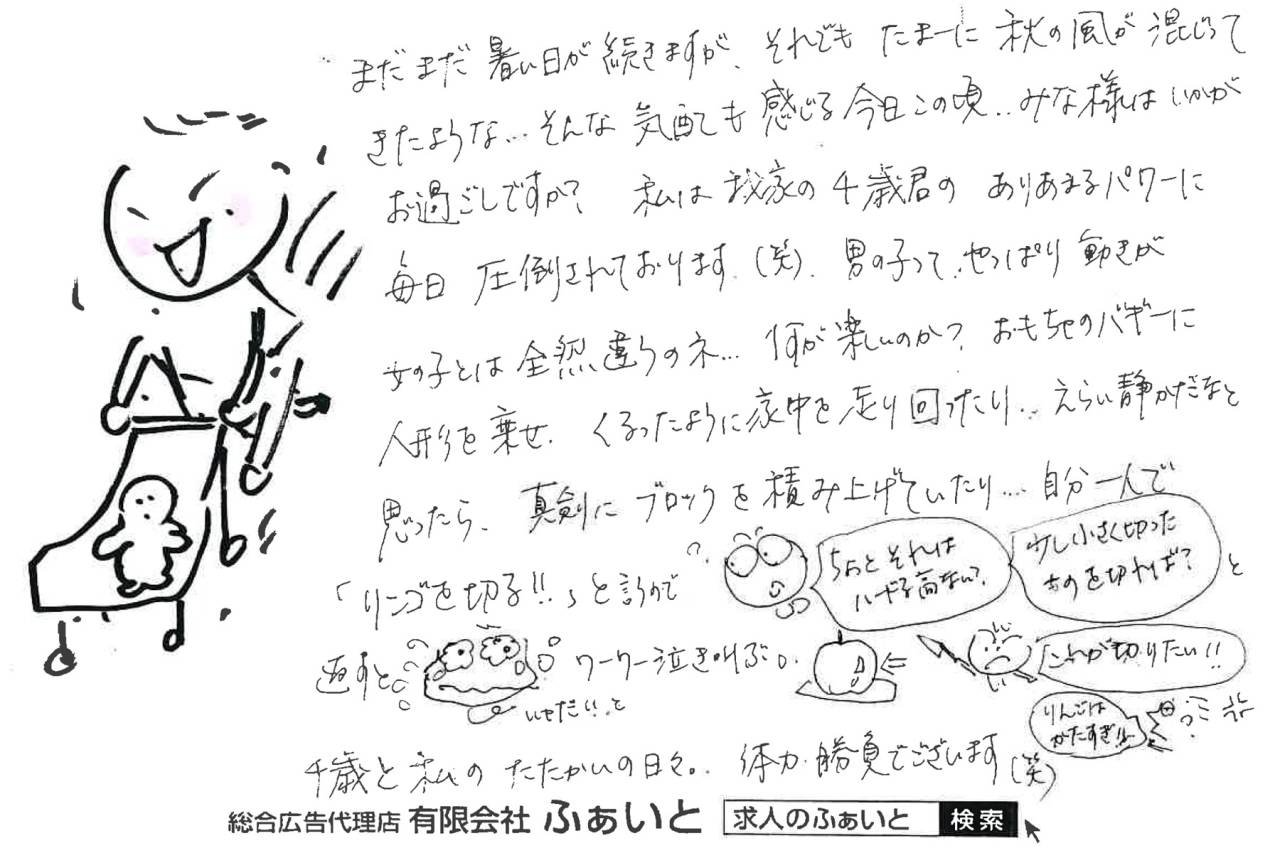 まだまだ暑い日が続きますが、それでもたまーに秋の風が混じって
きたような…そんな気配も感じる今日この頃…みな様はいかが
お過ごしですか? 私は我家の4歳君のありあまるパワーに
毎日圧倒されております(笑)、男の子って、やっぱり動きが
女の子とは全然違うのネ…何が楽しいのか?おもちゃのバギーに
人形を乗せ、くるったように家中を走り回ったり…えらい静かだなと
思ったら、真剣にブロックを積み上げていたり…自分一人で
「リンゴを切る!!」と言うので
ちょとそれは
ハードル高ない?
少し小さく切った
ものを切れば?
と
返すと
いやだ!!と
ワーワー泣き叫ぶ。
これが切りたい!!
りんごは
かたすぎ!!
4歳と私のたたかいの日々。体力勝負でございます(笑)
総合広告代理店 有限会社 ふぁいと 求人のふぁいと 検索